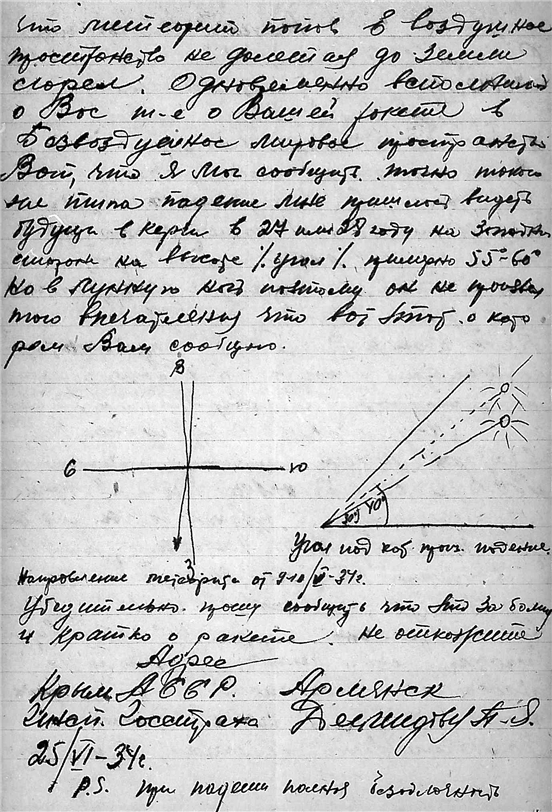 что метеорит попав в воздушное
пространство не долетая до земли
сгорел. Одновременно вспомнил
о Вас т-е о Вашей ракете в
безвоздушное мировое пространство
Вот, что я мог сообщить. точно такого
же типа падение мне пришлось видеть
будучи в Керчи в 27 или 28 году на Западной
стороне на высоте % угол % примерно 55°-60°
но в лунную ночь поэтому он не произвел
того впечатления что вот этот. о кото
ром Вам сообщаю.
В
С Ю
З
30° 40°
Угол под кот. проис. падение.
Направление метеорита от 9-10/VI-34г.
Убедительно прошу сообщить что это за болид
и кратко о ракете. Не откажите
Адрес
Крым АССР. Армянск
Инсп. Госстраха Демидову П.Я.
25/VI-34г.
P.S. при падении полная безоблачность